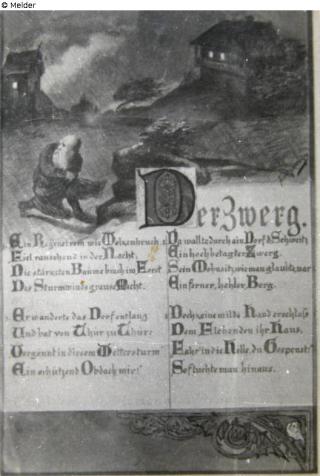 © Meider
Der Zwerg.
Ein Regenstrom wie Wolkenbruch
Fiel rauschend in der Nacht,
Die stärksten Bäume brach im Forst
Des Sturmwinds grause Macht.
Da wallte durch ein Dorf d. Schweiz
Ein hochbetagter Zwerg.
Sein Wohnsitz, wie man glaubte, war
Ein ferner, hohler Berg.
Er wanderte das Dorf entlang
Und bat von Thür zu Thüre
Vergönnt in diesem Wettersturm
Ein schützend Obdach mir!
Doch keine milde Hand erschloß
Dem Elenden ihr Haus.
in die du Gespenst!
So fluchte man hinaus.